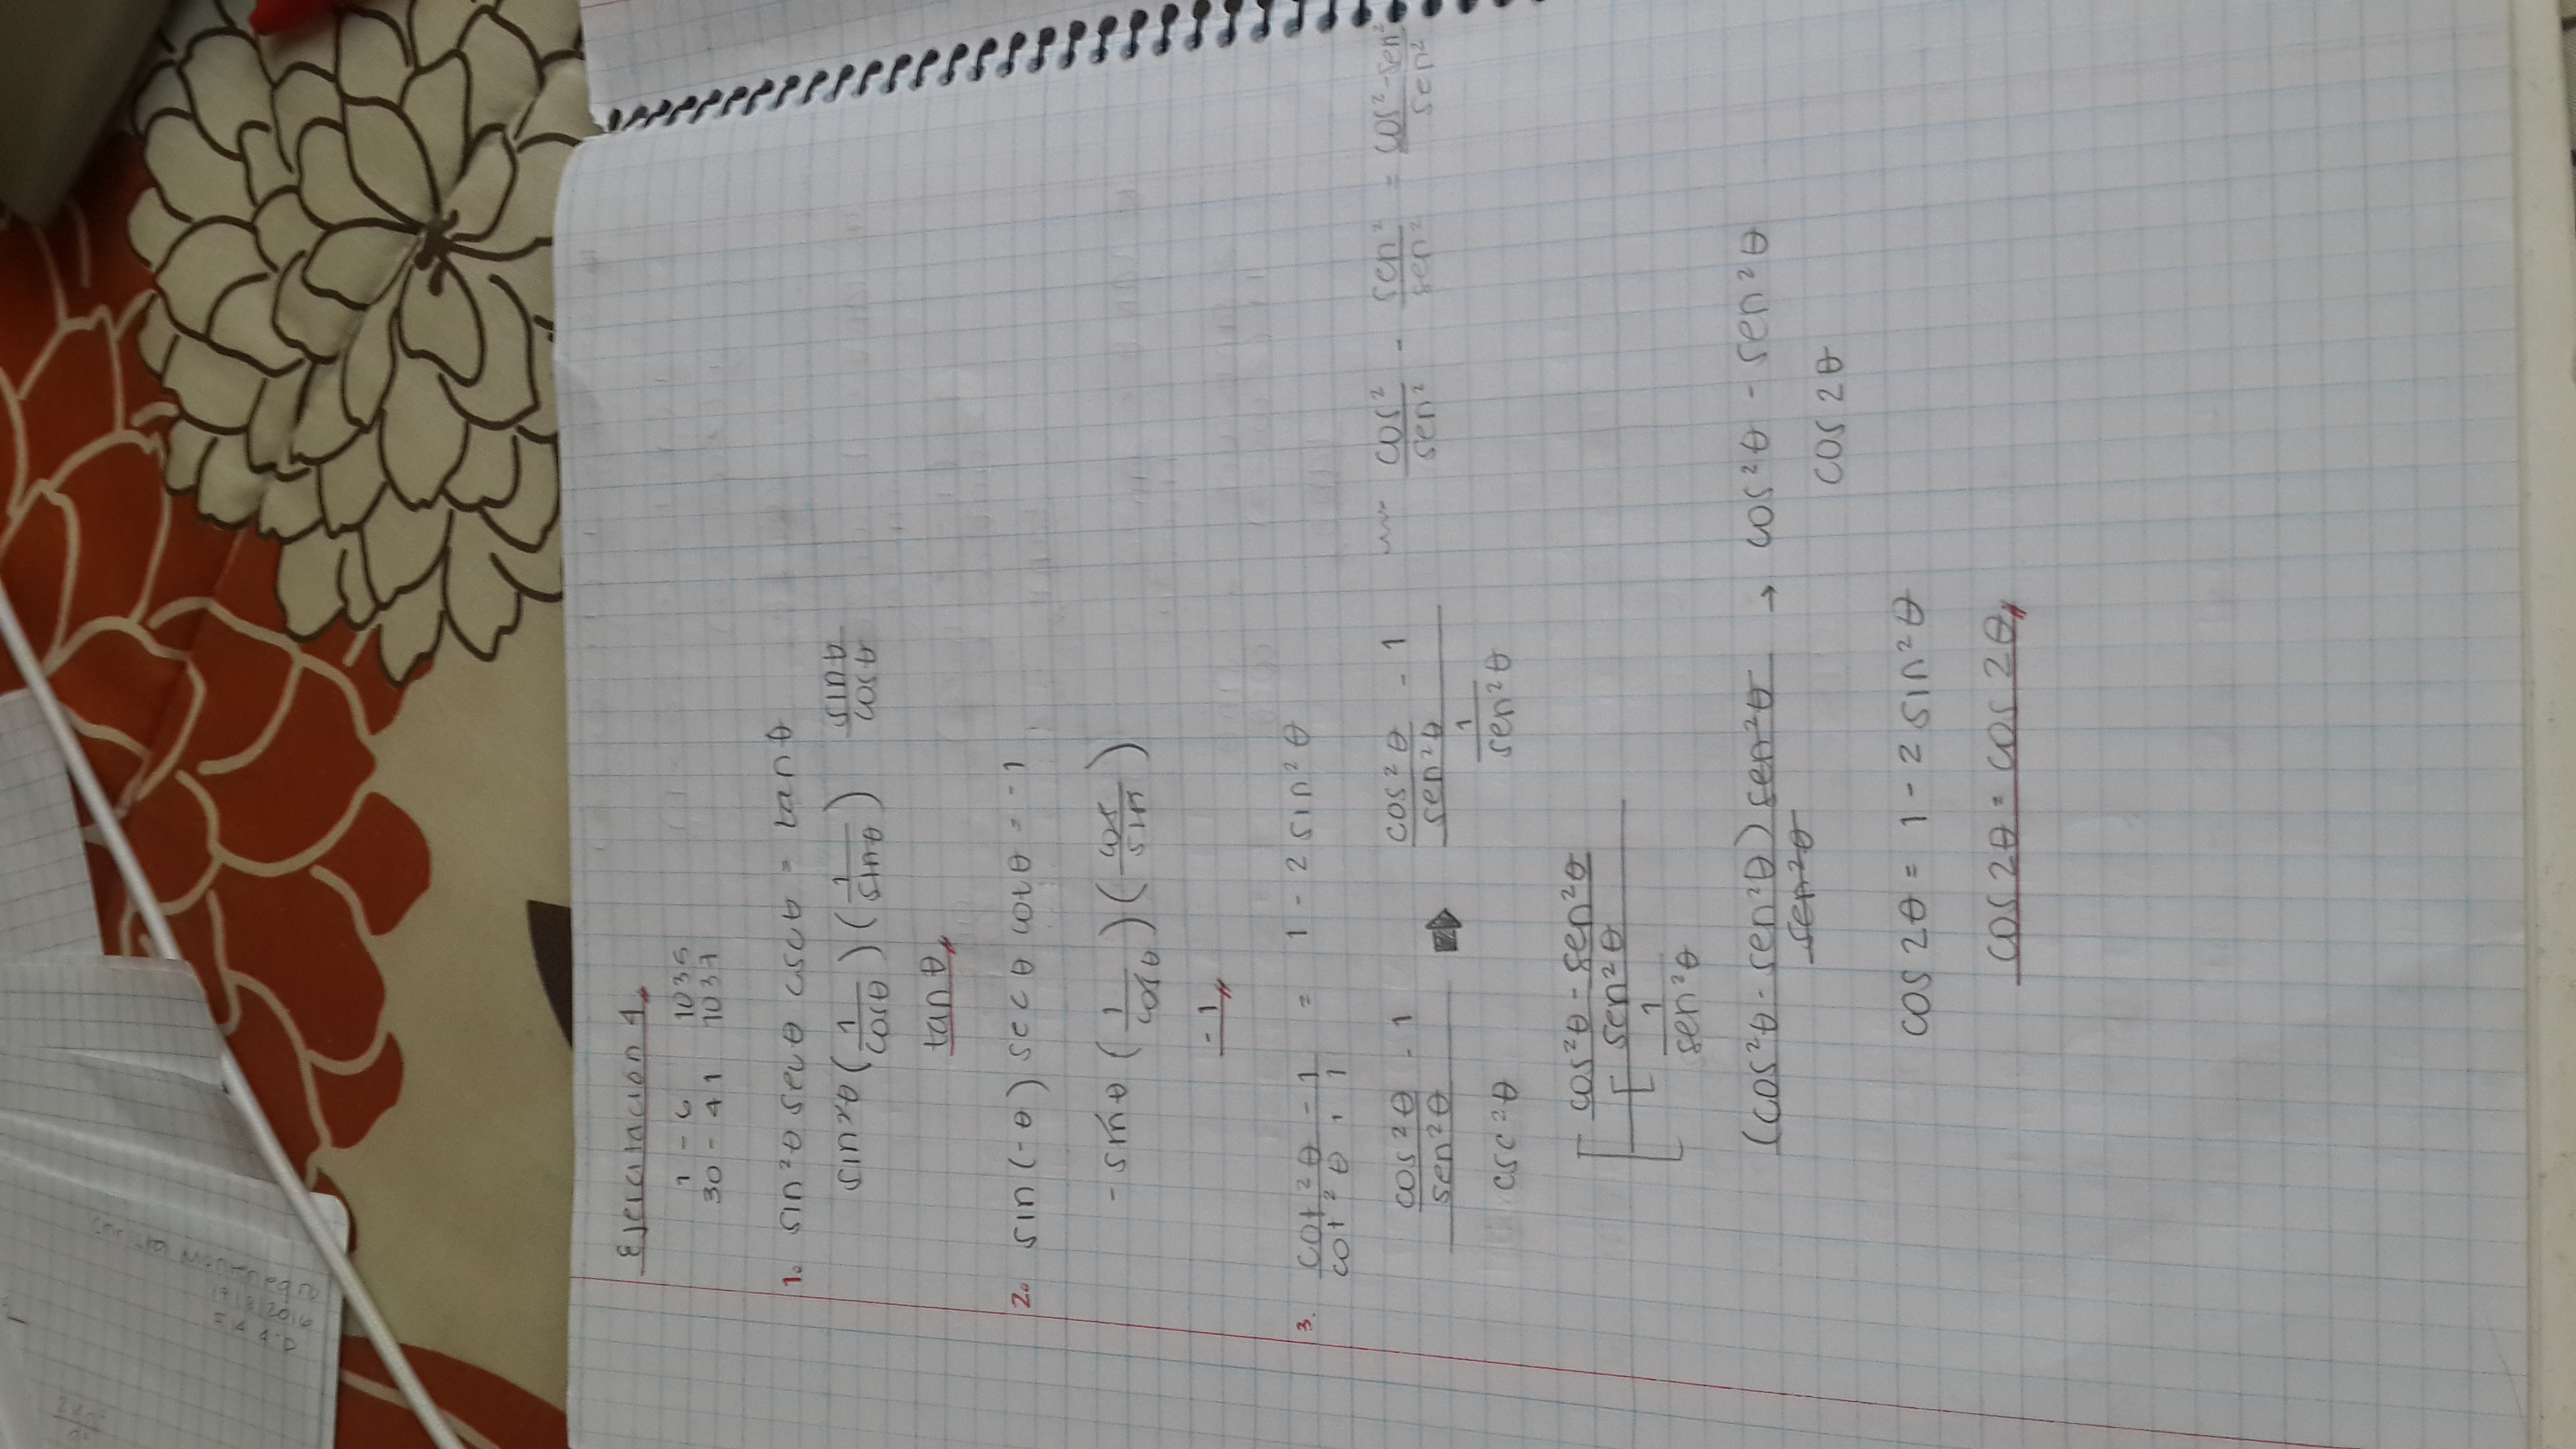 Ejercitación 4
1 - 6 1035
30 - 41 1037
1. sin²θ secθ cscθ = tanθ
sin²θ (1/cosθ) (1/sinθ) sinθ/cosθ
tanθ
2. sin(-θ) secθ cotθ = -1
-sinθ (1/cosθ) (cos/sin)
-1
3. cot²θ - 1 / cot²θ + 1 = 1 - 2 sin²θ
cos²θ/sen²θ - 1 / csc²θ → cos²θ/sen²θ - 1 / 1/sen²θ cos²/sen² - sen²/sen² = cos² - sen²/sen²
[cos²θ - sen²θ / [sen²θ / 1 / sen²θ
(cos²θ - sen²θ) sen²θ / sen²θ → cos²θ - sen²θ
cos 2θ
cos 2θ = 1 - 2 sin²θ
cos 2θ = cos 2θ
Montenegro
2016